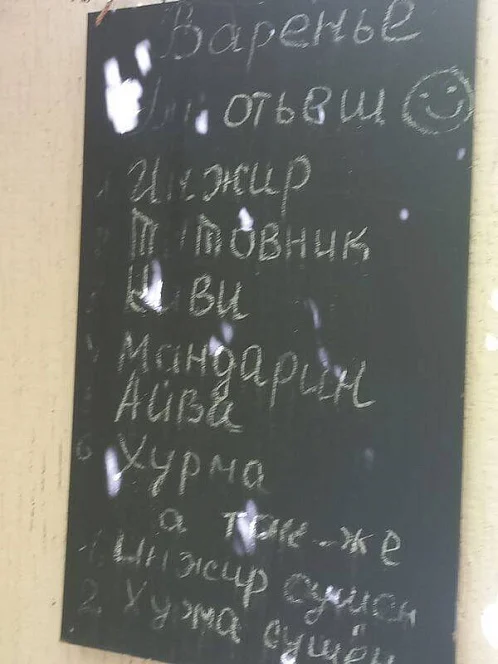 Варенье
отьвш
Инжир
Тутовник
Киви
Мандарин
Айва
6 Хурма
а так-же
1 Инжир сушён
2 Хурма сушён